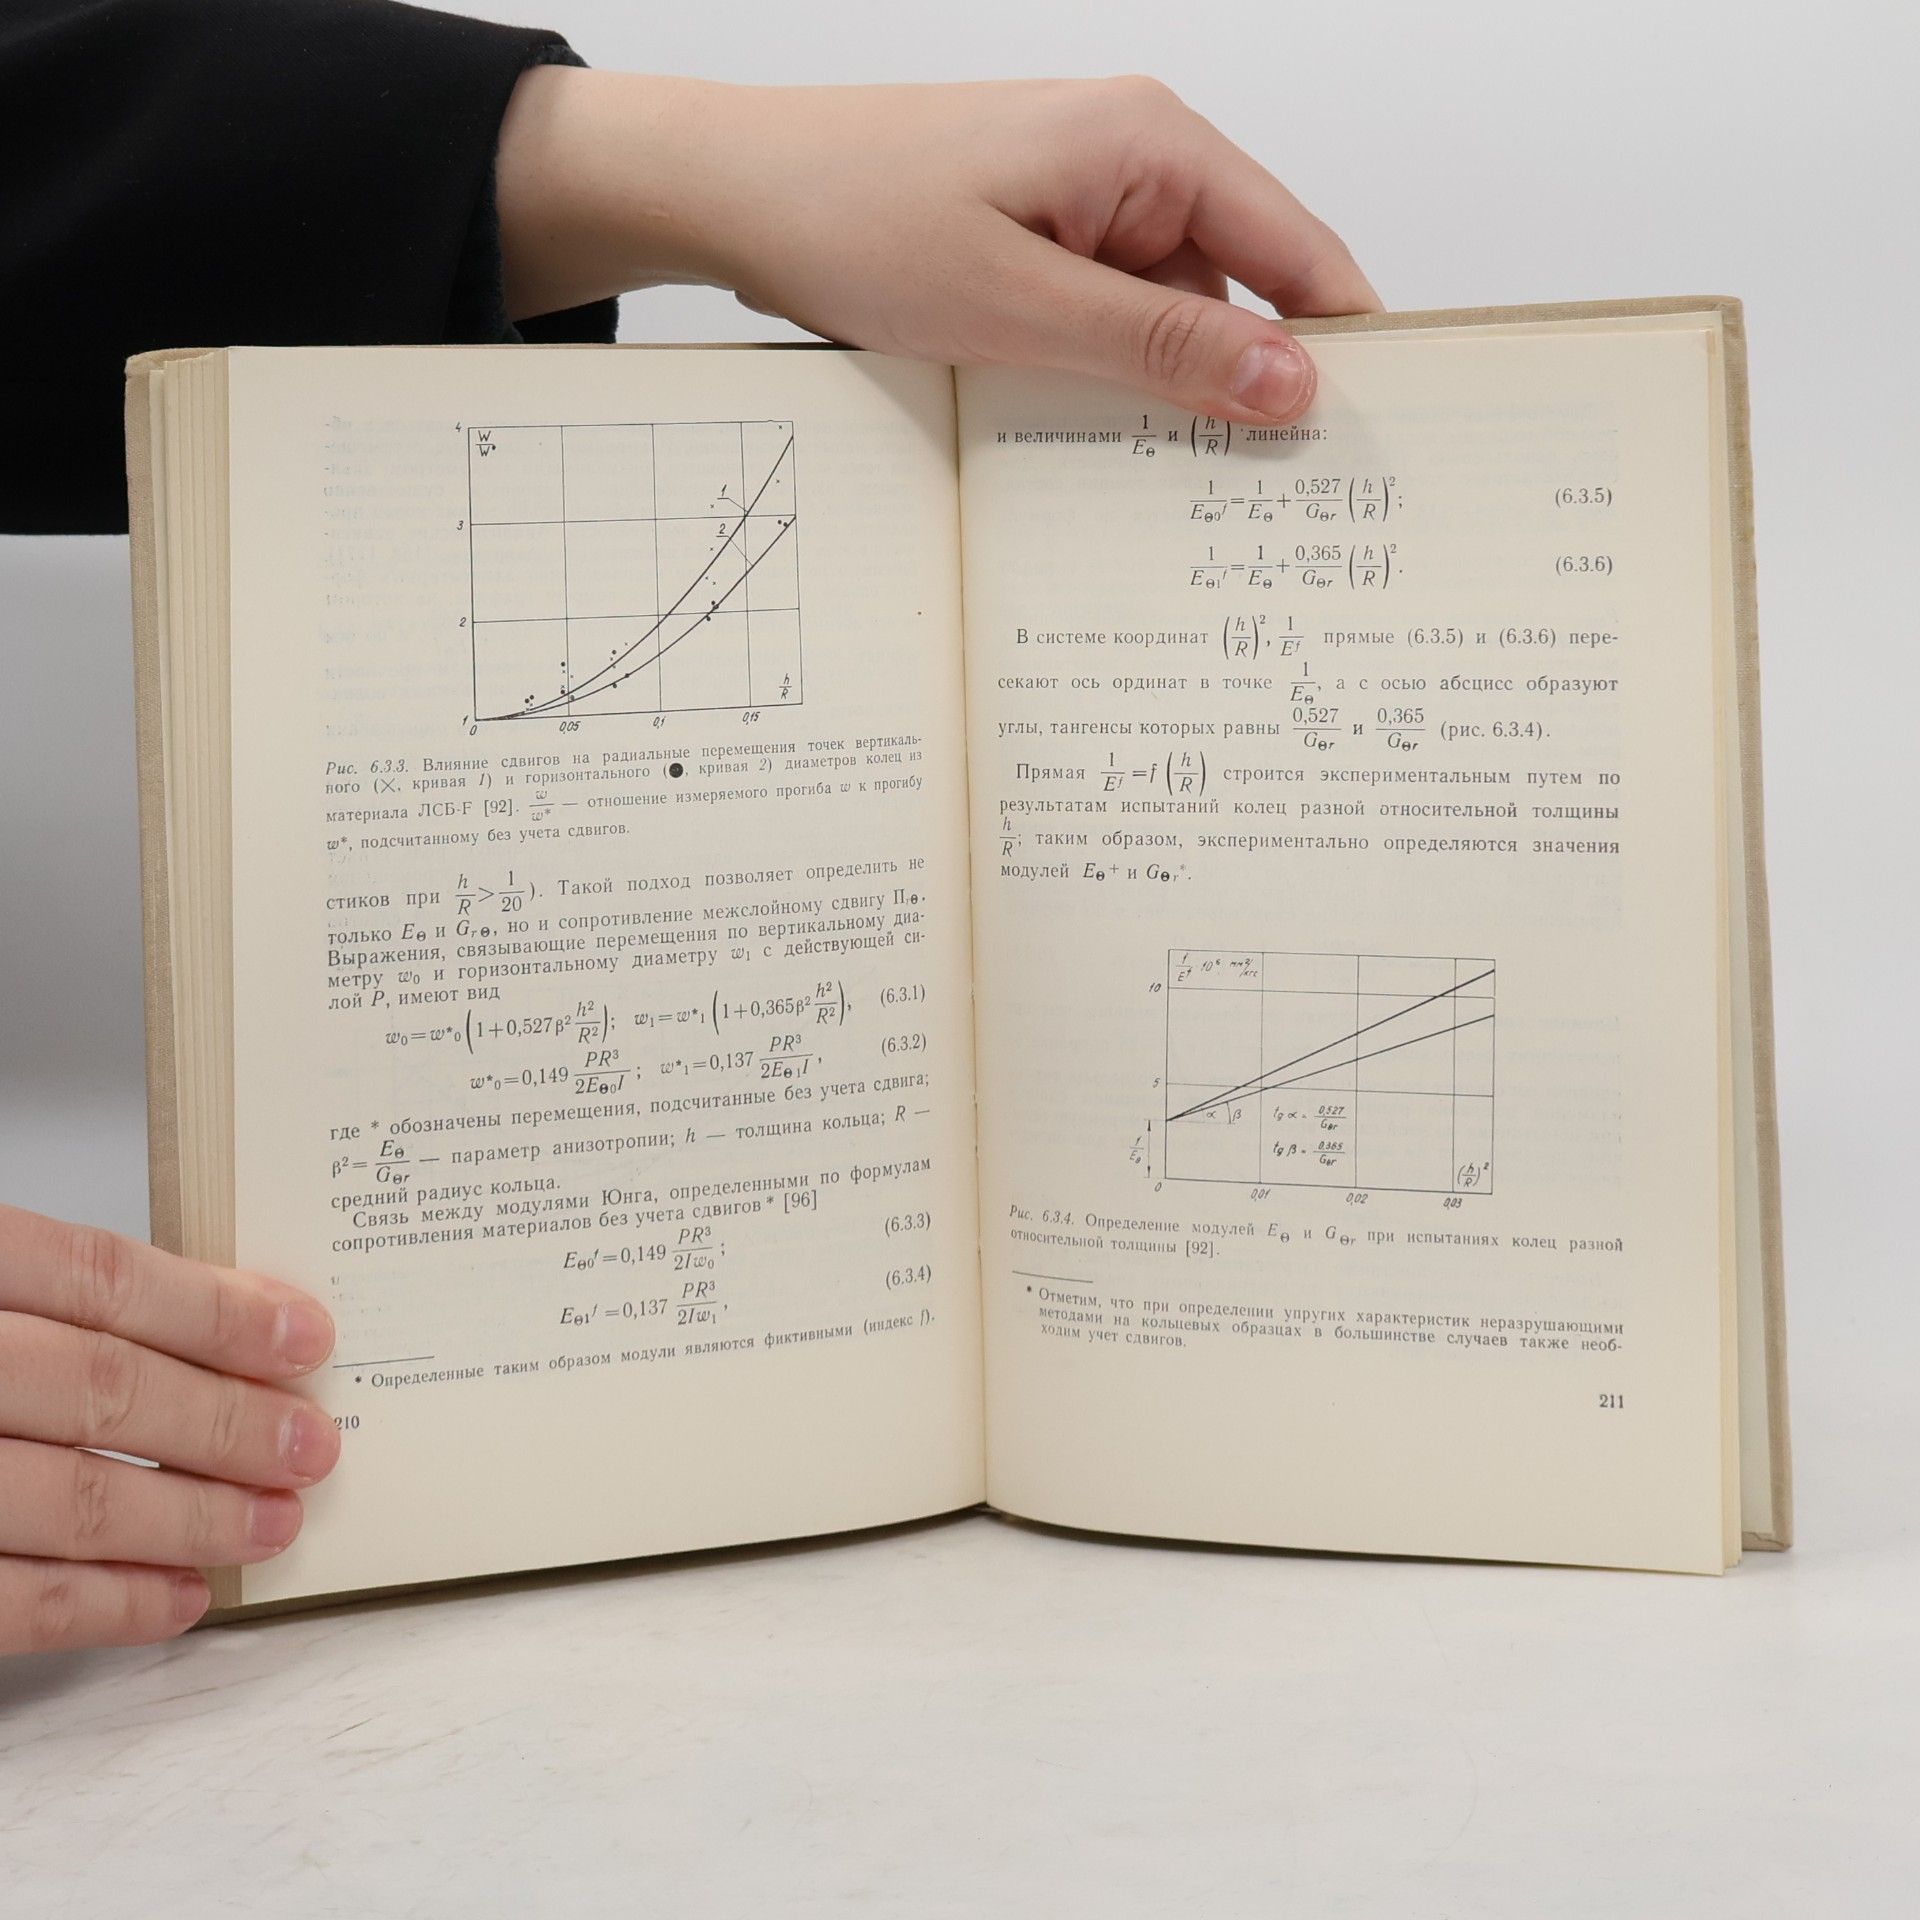 4
W/W*
1
3
2
2
h/R
1
0
0,05
0,1
0,15
Рис. 6.3.3. Влияние сдвигов на радиальные перемещения точек вертикаль-
ного (×, кривая 1) и горизонтального (●, кривая 2) диаметров колец из
материала ЛСБ-F [92]. w/w* — отношение измеряемого прогиба w к прогибу
w*, подсчитанному без учета сдвигов.
стиков при h/R > 1/20). Такой подход позволяет определить не
только EΘ и GrΘ, но и сопротивление межслойному сдвигу ПrΘ.
Выражения, связывающие перемещения по вертикальному диа-
метру w0 и горизонтальному диаметру w1 с действующей си-
лой P, имеют вид
w0=w*0(1+0,527β² h²/R²); w1=w*1(1+0,365β² h²/R²), (6.3.1)
w*0=0,149 PR³/2EΘ0I; w*1=0,137 PR³/2EΘ1I, (6.3.2)
где * обозначены перемещения, подсчитанные без учета сдвига;
β²= EΘ/GΘr — параметр анизотропии; h — толщина кольца; R —
средний радиус кольца.
Связь между модулями Юнга, определенными по формулам
сопротивления материалов без учета сдвигов* [96]
EΘ0ᶠ=0,149 PR³/2Iw0; (6.3.3)
EΘ1ᶠ=0,137 PR³/2Iw1, (6.3.4)
* Определенные таким образом модули являются фиктивными (индекс f).
210
и величинами 1/EΘ и (h/R) линейна:
1/EΘ0ᶠ = 1/EΘ + 0,527/GΘr (h/R)²; (6.3.5)
1/EΘ1ᶠ = 1/EΘ + 0,365/GΘr (h/R)². (6.3.6)
В системе координат (h/R)², 1/Eᶠ прямые (6.3.5) и (6.3.6) пере-
секают ось ординат в точке 1/EΘ, а с осью абсцисс образуют
углы, тангенсы которых равны 0,527/GΘr и 0,365/GΘr (рис. 6.3.4).
Прямая 1/Eᶠ = f (h/R) строится экспериментальным путем по
результатам испытаний колец разной относительной толщины
h/R; таким образом, экспериментально определяются значения
модулей EΘ⁺ и GΘr*.
1/Eᶠ · 10⁶ мм²/кгс
10
5
α β
tg α = 0,527/GΘr
tg β = 0,365/GΘr
1/EΘ
(h/R)²
0
0,01
0,02
0,03
Рис. 6.3.4. Определение модулей EΘ и GΘr при испытаниях колец разной
относительной толщины [92].
* Отметим, что при определении упругих характеристик неразрушающими
методами на кольцевых образцах в большинстве случаев также необ-
ходим учет сдвигов.
211